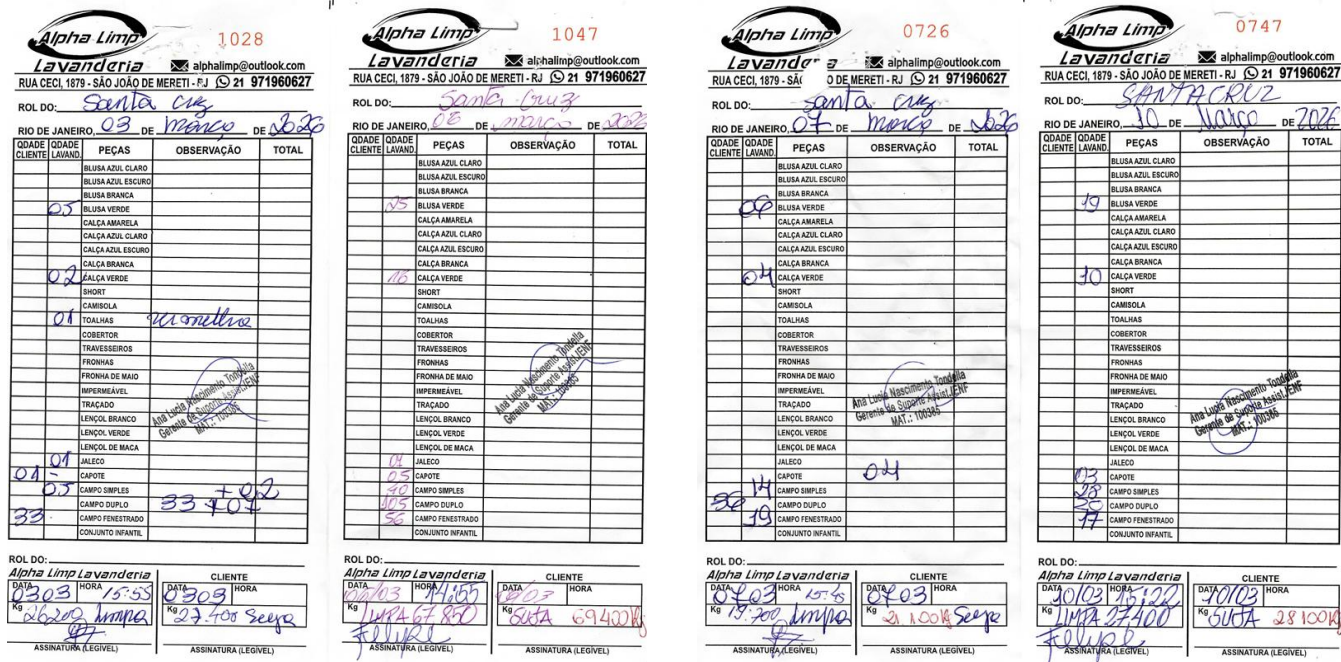 Alpha Limp
1028
Lavanderia
alphalimp@outlook.com
RUA CECI, 1879 - SÃO JOÃO DE MERETI - RJ 21 971960627
ROL DO: Santa Cruz
RIO DE JANEIRO, 03 DE março DE 2026
QDADE CLIENTE QDADE LAVAND. PEÇAS OBSERVAÇÃO TOTAL
BLUSA AZUL CLARO
BLUSA AZUL ESCURO
BLUSA BRANCA
05 BLUSA VERDE
CALÇA AMARELA
CALÇA AZUL CLARO
CALÇA AZUL ESCURO
CALÇA BRANCA
02 CALÇA VERDE
SHORT
CAMISOLA
01 TOALHAS
COBERTOR
TRAVESSEIROS
FRONHAS
FRONHA DE MAIO
IMPERMEÁVEL
TRAÇADO
LENÇOL BRANCO
LENÇOL VERDE
LENÇOL DE MACA
01 JALECO
01 - CAPOTE
05 CAMPO SIMPLES +02
CAMPO DUPLO 33 +07
33 CAMPO FENESTRADO
CONJUNTO INFANTIL
Ana Lucia Nascimento Tondella
Gerente de Suporte Assist./ENF
MAT.: 100385
ROL DO:
Alpha Limp Lavanderia CLIENTE
DATA 0303 HORA 15:55 DATA 0303 HORA
Kg 26200 Limpa Kg 27.400
ASSINATURA (LEGÍVEL) ASSINATURA (LEGÍVEL)
Alpha Limp
1047
Lavanderia
alphalimp@outlook.com
RUA CECI, 1879 - SÃO JOÃO DE MERETI - RJ 21 971960627
ROL DO: Santa Cruz
RIO DE JANEIRO, DE março DE 2026
QDADE CLIENTE QDADE LAVAND. PEÇAS OBSERVAÇÃO TOTAL
BLUSA AZUL CLARO
BLUSA AZUL ESCURO
BLUSA BRANCA
25 BLUSA VERDE
CALÇA AMARELA
CALÇA AZUL CLARO
CALÇA AZUL ESCURO
CALÇA BRANCA
CALÇA VERDE
SHORT
CAMISOLA
TOALHAS
COBERTOR
TRAVESSEIROS
FRONHAS
FRONHA DE MAIO
IMPERMEÁVEL
TRAÇADO
LENÇOL BRANCO
LENÇOL VERDE
LENÇOL DE MACA
JALECO
05 CAPOTE
CAMPO SIMPLES
105 CAMPO DUPLO
56 CAMPO FENESTRADO
CONJUNTO INFANTIL
Ana Lucia Nascimento Tondella
Gerente de Suporte Assist./ENF
MAT.: 100385
ROL DO:
Alpha Limp Lavanderia CLIENTE
DATA HORA 14:55 DATA HORA
Kg LIMPA 67.850 Kg SUJA 69400Kg
Felipe
ASSINATURA (LEGÍVEL) ASSINATURA (LEGÍVEL)
Alpha Limp
0726
Lavanderia
alphalimp@outlook.com
RUA CECI, 1879 - SÃO DE MERETI - RJ 21 971960627
ROL DO: Santa Cruz
RIO DE JANEIRO, 07 DE março DE 2026
QDADE CLIENTE QDADE LAVAND. PEÇAS OBSERVAÇÃO TOTAL
BLUSA AZUL CLARO
BLUSA AZUL ESCURO
BLUSA BRANCA
06 BLUSA VERDE
CALÇA AMARELA
CALÇA AZUL CLARO
CALÇA AZUL ESCURO
CALÇA BRANCA
04 CALÇA VERDE
SHORT
CAMISOLA
TOALHAS
COBERTOR
TRAVESSEIROS
FRONHAS
FRONHA DE MAIO
IMPERMEÁVEL
TRAÇADO
LENÇOL BRANCO
LENÇOL VERDE
LENÇOL DE MACA
JALECO
CAPOTE 04
14 CAMPO SIMPLES
36 CAMPO DUPLO
19 CAMPO FENESTRADO
CONJUNTO INFANTIL
Ana Lucia Nascimento Tondella
Gerente de Suporte Assist./ENF
MAT.: 100385
ROL DO:
Alpha Limp Lavanderia CLIENTE
DATA 0703 HORA 15:45 DATA 0703 HORA
Kg 19.700 Limpa Kg 21.100Kg
ASSINATURA (LEGÍVEL) ASSINATURA (LEGÍVEL)
Alpha Limp
0747
Lavanderia
alphalimp@outlook.com
RUA CECI, 1879 - SÃO JOÃO DE MERETI - RJ 21 971960627
ROL DO: SANTA CRUZ
RIO DE JANEIRO, 10 DE Março DE 2026
QDADE CLIENTE QDADE LAVAND. PEÇAS OBSERVAÇÃO TOTAL
BLUSA AZUL CLARO
BLUSA AZUL ESCURO
BLUSA BRANCA
19 BLUSA VERDE
CALÇA AMARELA
CALÇA AZUL CLARO
CALÇA AZUL ESCURO
CALÇA BRANCA
10 CALÇA VERDE
SHORT
CAMISOLA
TOALHAS
COBERTOR
TRAVESSEIROS
FRONHAS
FRONHA DE MAIO
IMPERMEÁVEL
TRAÇADO
LENÇOL BRANCO
LENÇOL VERDE
LENÇOL DE MACA
JALECO
03 CAPOTE
28 CAMPO SIMPLES
CAMPO DUPLO
17 CAMPO FENESTRADO
CONJUNTO INFANTIL
Ana Lucia Nascimento Tondella
Gerente de Suporte Assist./ENF
MAT.: 100385
ROL DO:
Alpha Limp Lavanderia CLIENTE
DATA 10/03 HORA 15:22 DATA 10/03 HORA
Kg LIMPA 27400 Kg SUJA 28100Kg
Felipe
ASSINATURA (LEGÍVEL) ASSINATURA (LEGÍVEL)